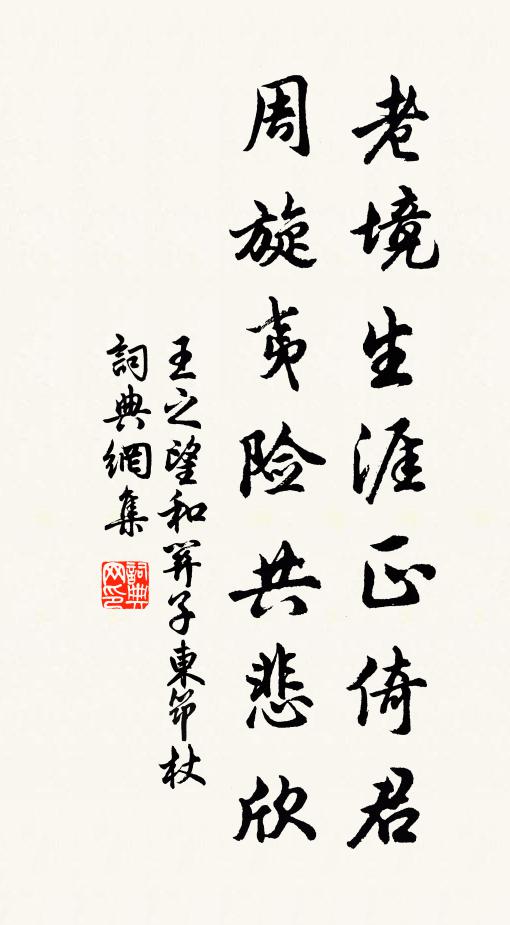 老境生涯正倚君
周旋夷险共悲欣
王之望和羿子東筇杖
詞典網集
詞典网印